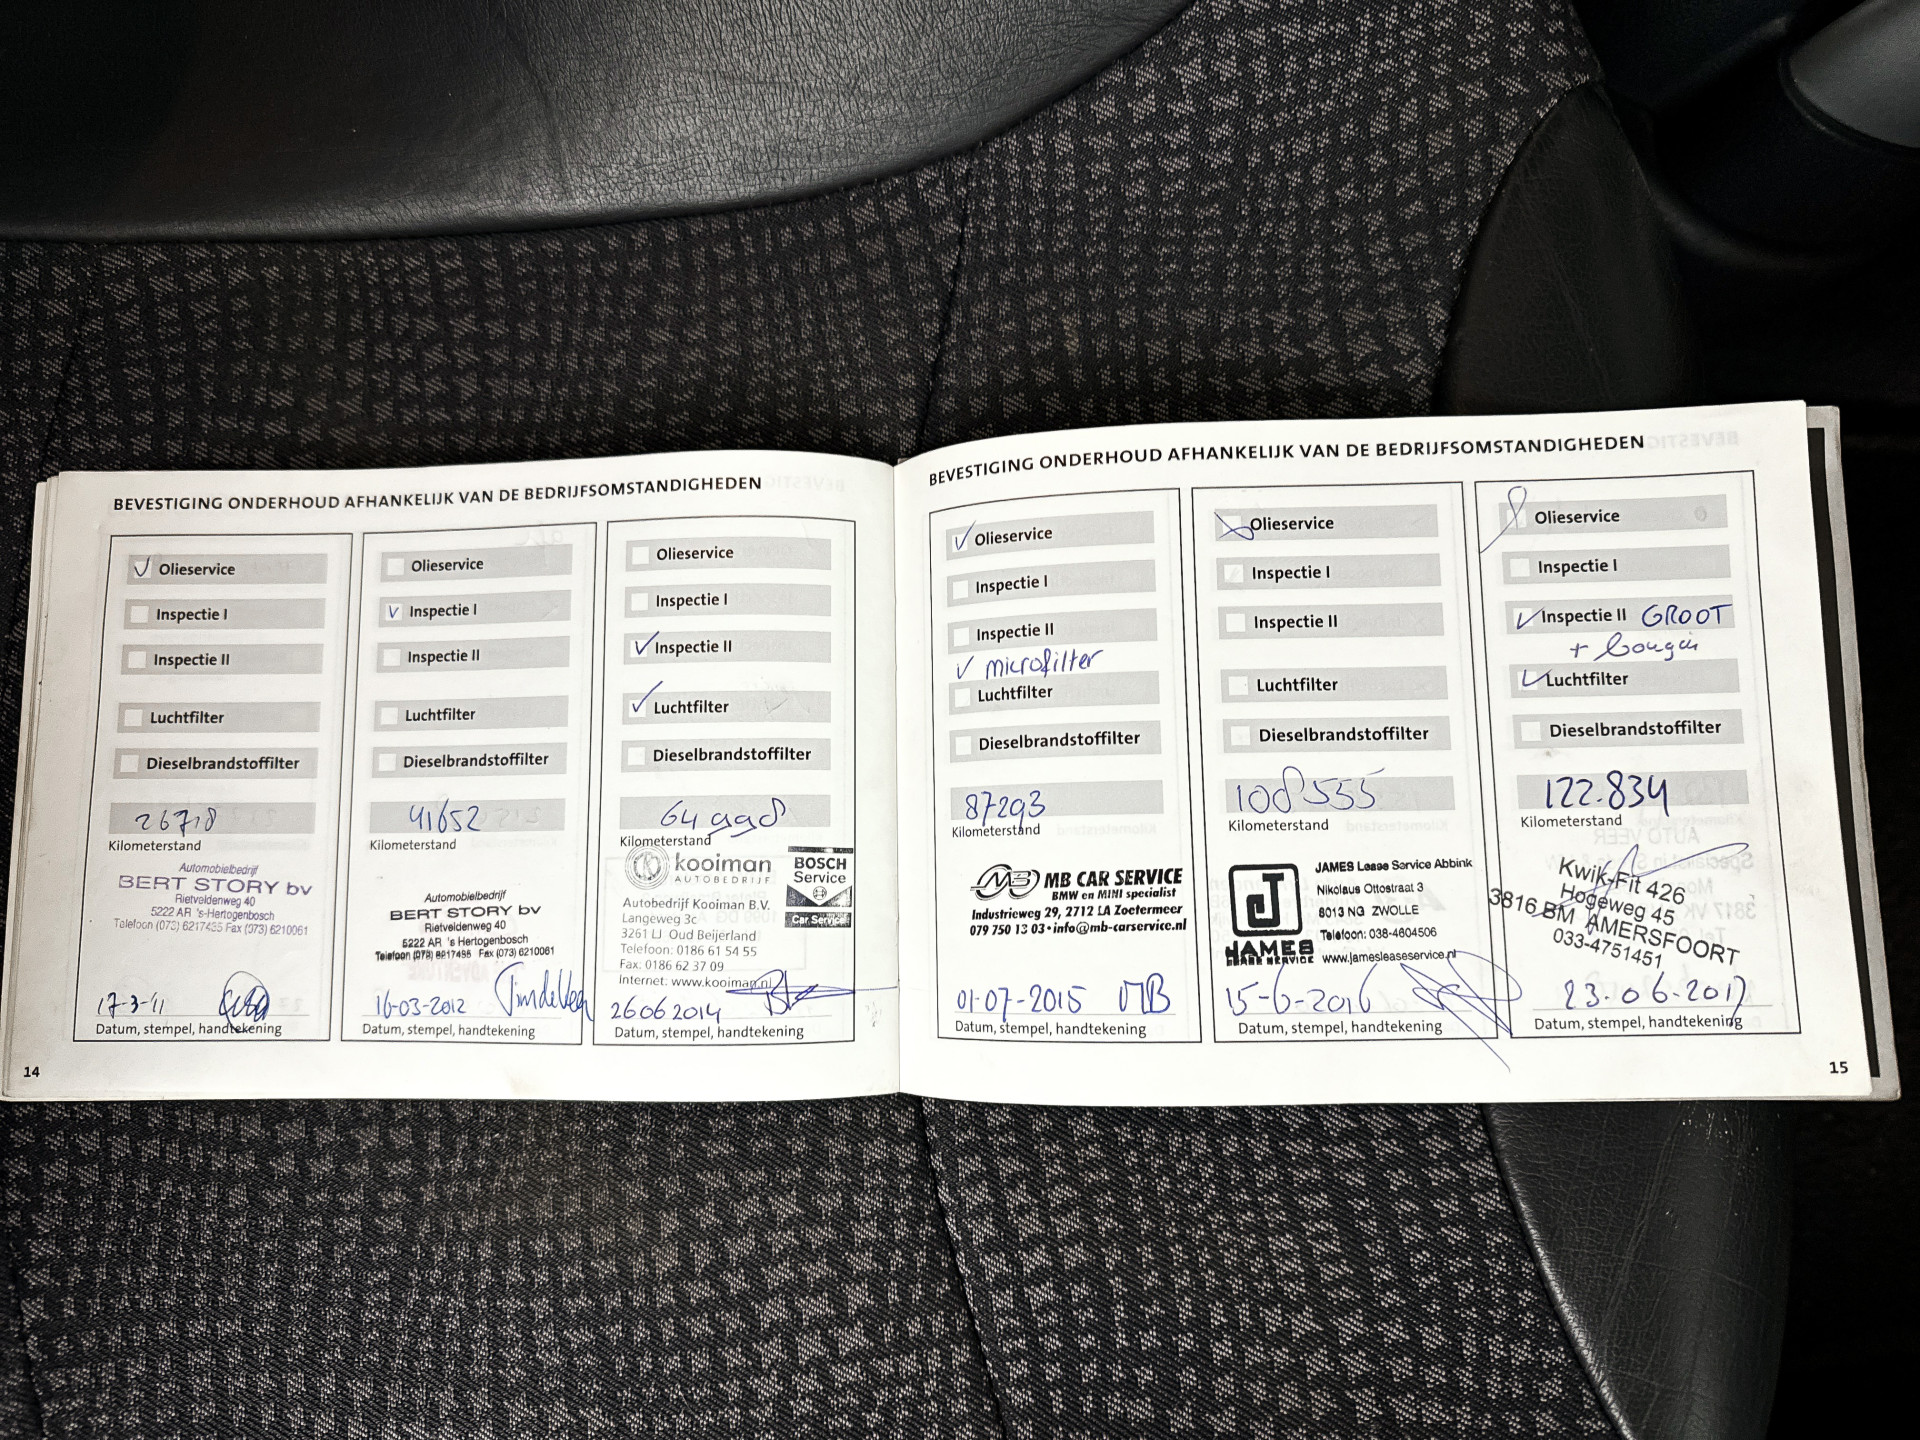 BEVESTIGING ONDERHOUD AFHANKELIJK VAN DE BEDRIJFSOMSTANDIGHEDEN
Olieservice
Inspectie I
Inspectie II
Luchtfilter
Dieselbrandstoffilter
26718
Kilometerstand
Automobielbedrijf
BERT STORY bv
Rietveldenweg 40
5222 AR 's-Hertogenbosch
Telefoon (073) 6217435 Fax (073) 6210061
17-3-'11
Datum, stempel, handtekening
Olieservice
Inspectie I
Inspectie II
Luchtfilter
Dieselbrandstoffilter
41652
Kilometerstand
Automobielbedrijf
BERT STORY bv
Rietveldenweg 40
5222 AR 's Hertogenbosch
Telefoon (073) 6217435 Fax (073) 6210061
16-03-2012
Datum, stempel, handtekening
Olieservice
Inspectie I
Inspectie II
Luchtfilter
Dieselbrandstoffilter
64998
Kilometerstand
kooiman
AUTOBEDRIJF
BOSCH
Service
Car Service
Autobedrijf Kooiman B.V.
Langeweg 3c
3261 LJ Oud Beijerland
Telefoon: 0186 61 54 55
Fax: 0186 62 37 09
Internet: www.kooiman.nl
26062014
Datum, stempel, handtekening
14
BEVESTIGING ONDERHOUD AFHANKELIJK VAN DE BEDRIJFSOMSTANDIGHEDEN
Olieservice
Inspectie I
Inspectie II
microfilter
Luchtfilter
Dieselbrandstoffilter
87293
Kilometerstand
MB MB CAR SERVICE
BMW en MINI specialist
Industrieweg 29, 2712 LA Zoetermeer
079 750 13 03 • info@mb-carservice.nl
01-07-2015 MB
Datum, stempel, handtekening
Olieservice
Inspectie I
Inspectie II
Luchtfilter
Dieselbrandstoffilter
108555
Kilometerstand
J
JAMES
LEASE SERVICE
JAMES Lease Service Abbink
Nikolaus Ottostraat 3
8013 NG ZWOLLE
Telefoon: 038-4604506
www.jamesleaseservice.nl
15-6-2016
Datum, stempel, handtekening
Olieservice
Inspectie I
Inspectie II GROOT
+ bougie
Luchtfilter
Dieselbrandstoffilter
122.834
Kilometerstand
Kwik-Fit 426
Hogeweg 45
3816 BM AMERSFOORT
033-4751451
23-06-2017
Datum, stempel, handtekening
15